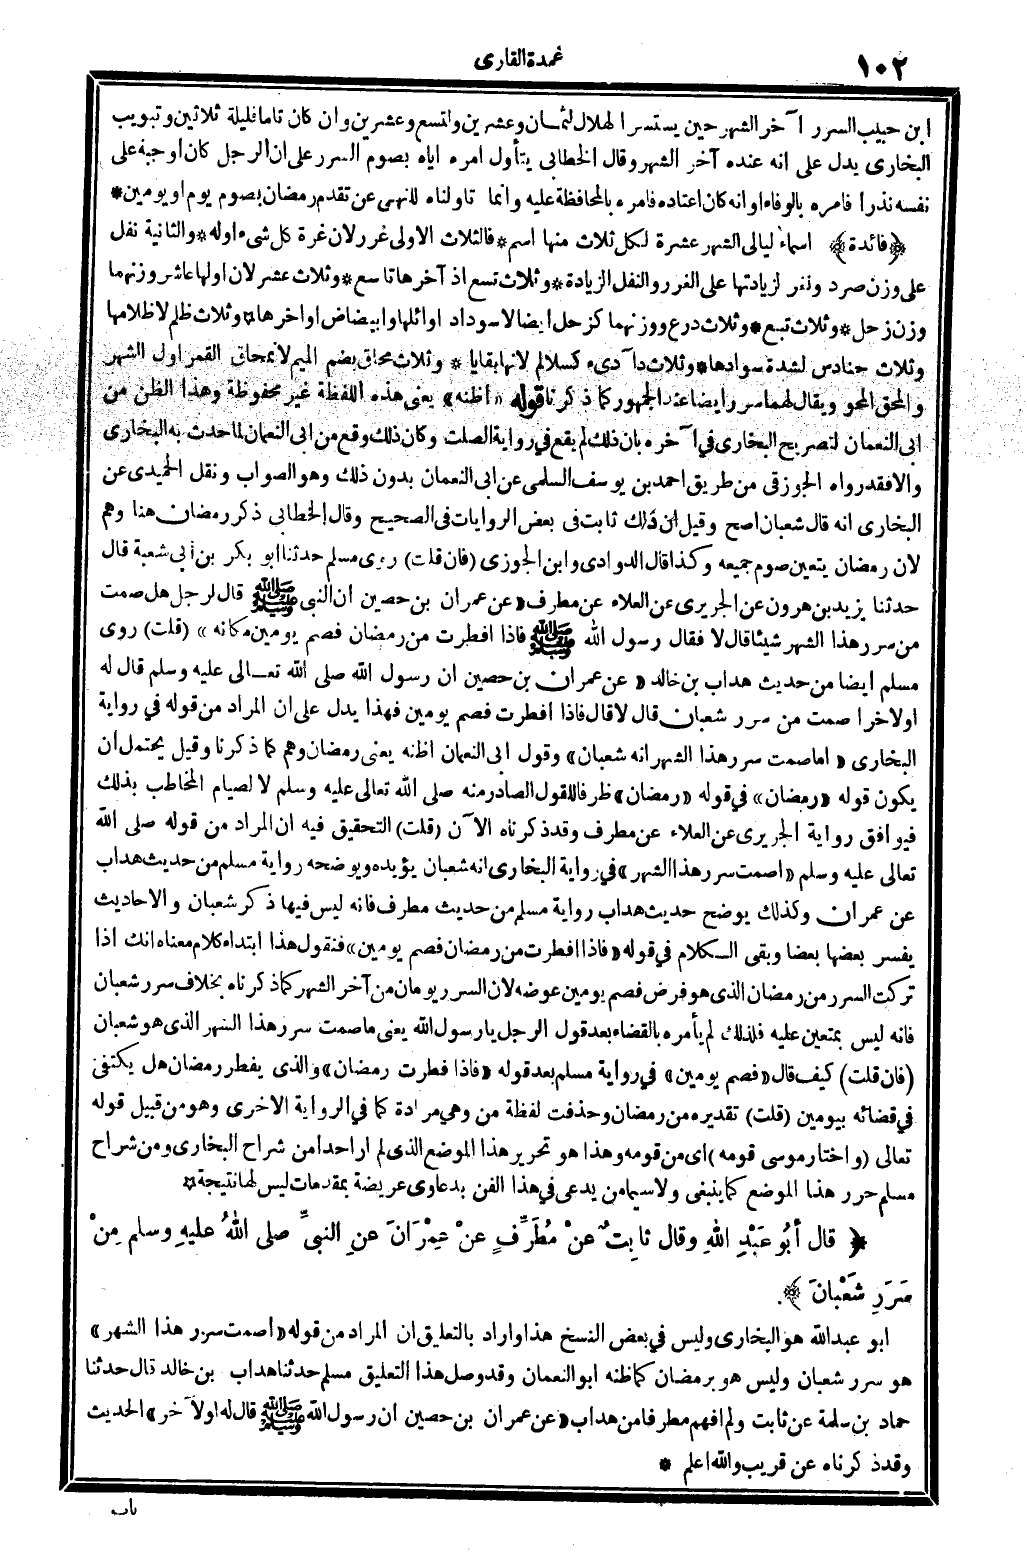 ١٠٢
عمدة القارى
ابن حبيب السرر آخر الشهر حين يستسر الهلال لثمان وعشرين ولتسع وعشرين وان كان تاما فليلة ثلاثين وتبويب
البخارى يدل على انه عنده آخر الشهر وقال الخطابى يتأول امره اياه بصوم السرر على ان الرجل كان اوجبه على
نفسه نذرا فامره بالوفاء او انه كان اعتاده فامره بالمحافظة عليه وانما تاولناه للنهى عن تقدم رمضان بصوم يوم او يومين *
﴿فائدة﴾ اسماء ليالى الشهر عشرة لكل ثلاث منها اسم * فالثلاث الاولى غرر لان غرة كل شىء اوله * والثانية نفل
على وزن صرد ونغر لزيادتها على الغرر والنفل الزيادة * وثلاث تسع اذ آخرها تاسع * وثلاث عشر لان اولها عاشر وزنهما
وزن زحل * وثلاث تبع * وثلاث درع ووزنهما كزحل ايضا لاسوداد اوائلها وابيضاض اواخرها * وثلاث ظلم لاظلامها
وثلاث حنادس لشدة سوادها * وثلاث دآدىء كسلالم لانها بقايا * وثلاث محاق بضم الميم لانمحاق القمر اول الشهر
والمحق المحو ويقال لهما سرر ايضا عند الجمهور كما ذكرنا قوله «اظنه» يعنى هذه اللفظة غير محفوظة وهذا الظن من
ابى النعمان لتصريح البخارى فى آخره بان ذلك لم يقع فى رواية الصلت وكان ذلك وقع من ابى النعمان لما حدث به البخارى
والا فقد رواه الجوزقى من طريق احمد بن يوسف السلمى عن ابى النعمان بدون ذلك وهو الصواب ونقل الحميدى عن
البخارى انه قال شعبان اصح وقيل ان ذلك ثابت فى بعض الروايات فى الصحيح وقال الخطابى ذكر رمضان هنا وهم
لان رمضان يتعين صوم جميعه وكذا قال الدوادى وابن الجوزى (فان قلت) روى مسلم حدثنا ابو بكر بن أبى شعبة قال
حدثنا يزيد بن هرون عن الجريرى عن العلاء عن مطرف «عن عمران بن حصين ان النبى ﷺ قال لرجل هل صمت
من سرر هذا الشهر شيئا قال لا فقال رسول الله ﷺ فاذا افطرت من رمضان فصم يومين مكانه» (قلت) روى
مسلم ايضا من حديث هداب بن خالد «عن عمران بن حصين ان رسول الله صلى الله تعالى عليه وسلم قال له
او لاخر اصمت من سرر شعبان قال لا قال فاذا افطرت فصم يومين فهذا يدل على ان المراد من قوله فى رواية
البخارى «اما صمت سرر هذا الشهر انه شعبان» وقول ابى النعمان اظنه يعنى رمضان وهم كما ذكرنا وقيل يحتمل ان
يكون قوله «رمضان» فى قوله «رمضان» ظرفا للقول الصادر منه صلى الله تعالى عليه وسلم لا لصيام المخاطب بذلك
فيوافق رواية الجريرى عن العلاء عن مطرف وقد ذكرناه الآن (قلت) التحقيق فيه ان المراد من قوله صلى الله
تعالى عليه وسلم «اصمت سرر هذا الشهر» فى رواية البخارى انه شعبان يؤيده ويوضحه رواية مسلم من حديث هداب
عن عمران وكذلك يوضح حديث هداب رواية مسلم من حديث مطرف فانه ليس فيها ذكر شعبان والاحاديث
يفسر بعضها بعضا وبقى الكلام فى قوله «فاذا افطرت من رمضان فصم يومين» فنقول هذا ابتداء كلام معناه انك اذا
تركت السرر من رمضان الذى هو فرض فصم يومين عوضه لان السرر يومان من آخر الشهر كما ذكرناه بخلاف سرر شعبان
فانه ليس بمتعين عليه فلذلك لم يأمره بالقضاء بعد قول الرجل يا رسول الله يعنى ما صمت سرر هذا الشهر الذى هو شعبان
(فان قلت) كيف قال «فصم يومين» فى رواية مسلم بعد قوله «فاذا فطرت رمضان» والذى يفطر رمضان هل يكتفى
فى قضائه بيومين (قلت) تقديره من رمضان وحذفت لفظة من وهى مرادة كما فى الرواية الاخرى وهو من قبيل قوله
تعالى (واختار موسى قومه) اى من قومه وهذا هو تحرير هذا الموضع الذى لم ار احدا من شراح البخارى ومن شراح
مسلم حرر هذا الموضع كما ينبغى ولا سيما من يدعى فى هذا الفن بدعاوى عريضة بمقدمات ليس لها نتيجة *
﴿ قال أَبُو عَبْدِ اللهِ وقال ثابِتٌ عنْ مُطَرِّفٍ عنْ عِمْرَانَ عنِ النبيِّ صلى اللهُ عليهِ وسلم مِنْ
سَرَرِ شَعْبانَ ﴾.
ابو عبدالله هو البخارى وليس فى بعض النسخ هذا واراد بالتعليق ان المراد من قوله «اصمت سرر هذا الشهر»
هو سرر شعبان وليس هو برمضان كما ظنه ابو النعمان وقد وصل هذا التعليق مسلم حدثنا هداب بن خالد قال حدثنا
حماد بن سلمة عن ثابت ولم افهم مطرفا من هداب «عن عمران بن حصين ان رسول الله ﷺ قال له او لآخر» الحديث
وقد ذكرناه عن قريب والله اعلم *
باب